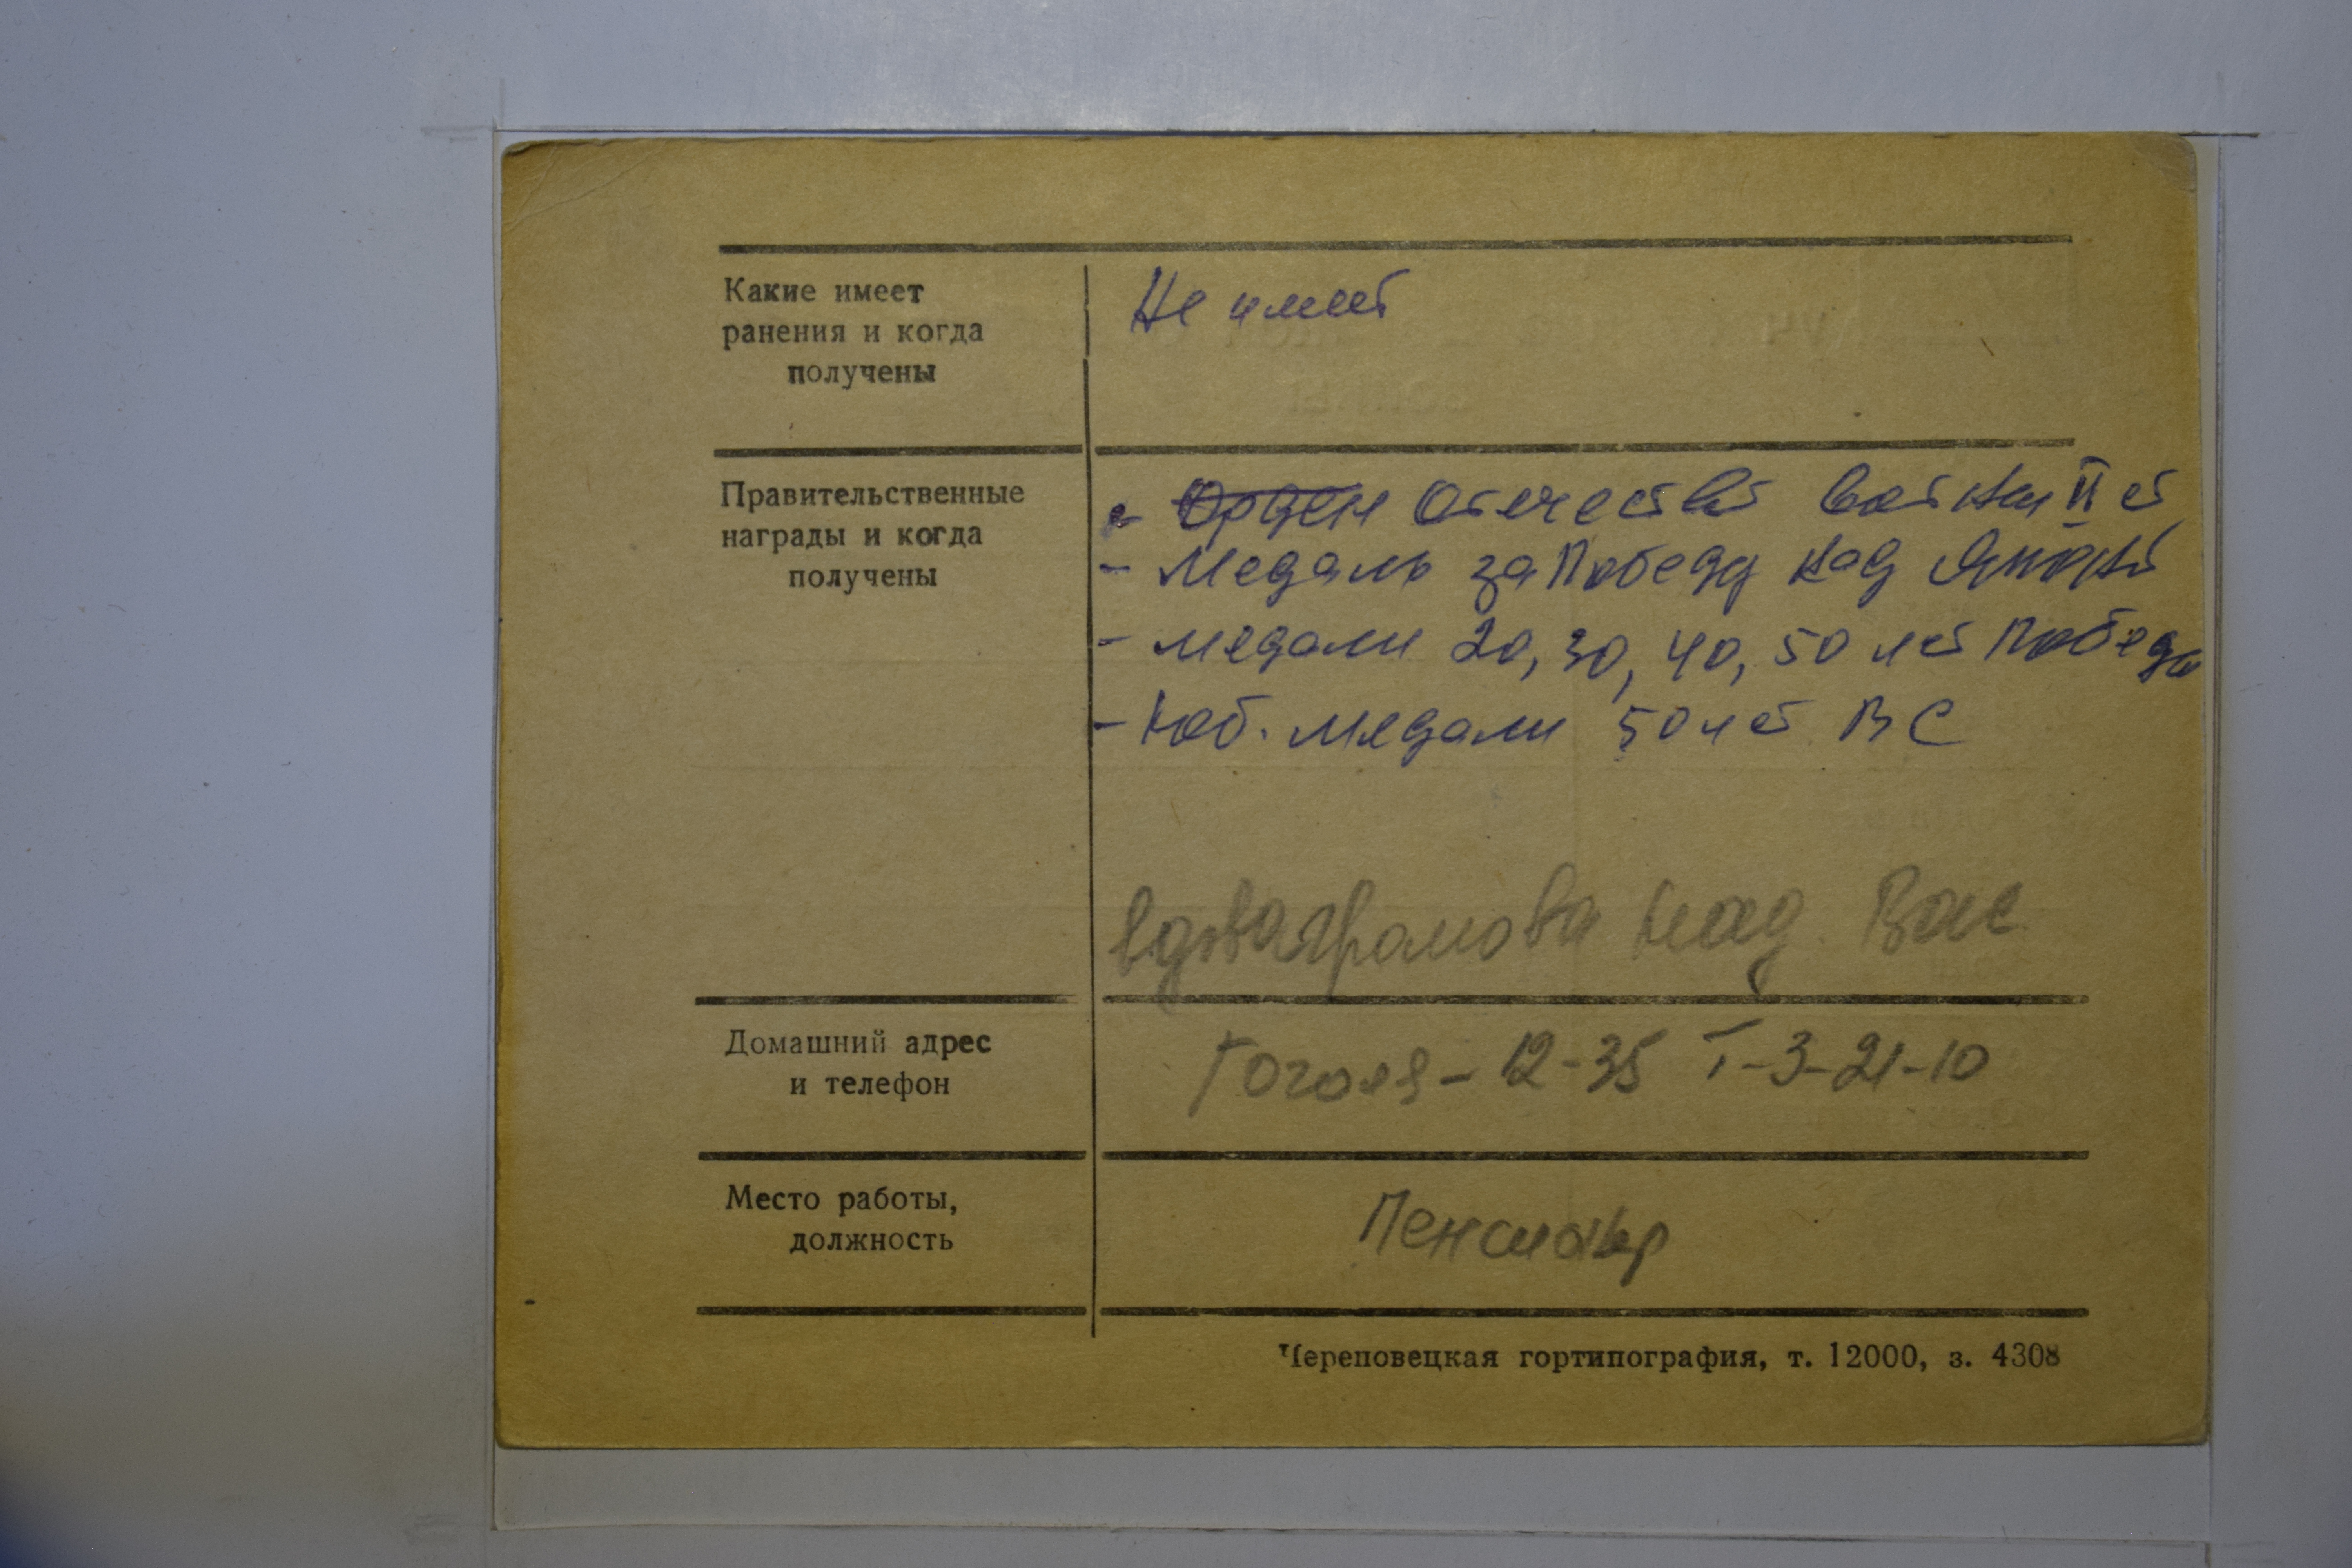 Какие имеет
ранения и когда
получены
Не имеет
Правительственные
награды и когда
получены
- Орден Отечеств войны II с
- Медаль за Победу над Япон
- медали 20, 30, 40, 50 лет Победы
- Юб. медали 50 лет ВС
вдова Громова Над. Вас.
Домашний адрес
и телефон
Гоголя - 12-35 Т-3-21-10
Место работы,
должность
Пенсионер
Череповецкая гортипография, т. 12000, з. 4308